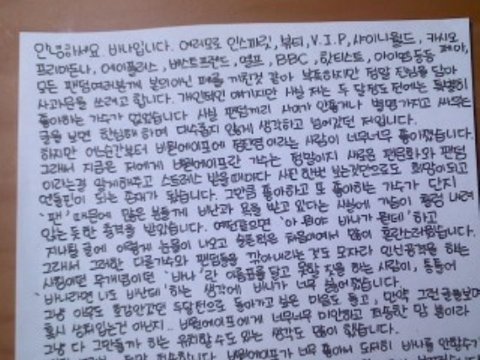 안녕하세요. 바나입니다. 여러모로 인스피릿, 뷰티, V.I.P, 샤이니월드, 카시오
프리마돈나, 에이플러스, 베스트프렌드, 엘프, BBC, 핫티스트, 아이엠 등등 제아,
모든 팬덤여러분께 본의아닌 피해를 끼친것 같아 부족하지만 정말 진심을 담아
사과문을 쓰려고 합니다. 개인적인 얘기지만 사실 저는 두 달정도 전에는 특별히
좋아하는 가수가 없었습니다. 사실 팬덤끼리 사이가 안좋거나 별명가지고 싸우는
글을 보면 한심해 하며 대수롭지 않게 생각하고 넘어갔던 저입니다.
하지만 어느순간부터 비원에이포에 진환영이라는 사람이 너무너무 좋아졌습니다.
그래서 지금은 저에게 비원에이포란 가수는 텀이지 새로운 팬문화와 팬덤
이라는걸 알게해주고 스트레스 받을때마다 사진한번 보는것만으로도 희망이되고
원동력이 되는 존재가 됐습니다. 그만큼 좋아하고 또 좋아하는 가수가 단지
'팬' 때문에 많은 분들께 비난과 욕을 받고 있다는 사실에 가슴이 철렁 내려
앉는듯한 충격을 받았습니다. 예전같으면 '아 뭔야 바나가 뭔데' 하고
지나칠 글에 이렇게 눈물이 나오고 솔직히 처음이여서 많이 혼란스러웠습니다.
그래서 그러한 다른가수와 팬덤들을 깎아내리는 것도 모자라 인신공격을 하는
사람이 '바나' 란 이름표를 달고 못할 짓을 하는 사람이, 통틀어
'바나라면 너도 비난해' 하는 생각에 바나가 너무 싫어졌습니다.
그냥 아무도 좋아안했던 두달전으로 돌아가고 싶은 마음도 들고, 만약 그런 글들보며
혹시 상처입는건 아닌지.. 비원에이포에게 너무너무 미안하고 죄송한 맘 뿐이라
그냥 다 그만둘까 하는 유치할수도 있는 생각도 많이 했습니다.
비원에이포가 너무 좋아서 도저히 바나를 안할수가